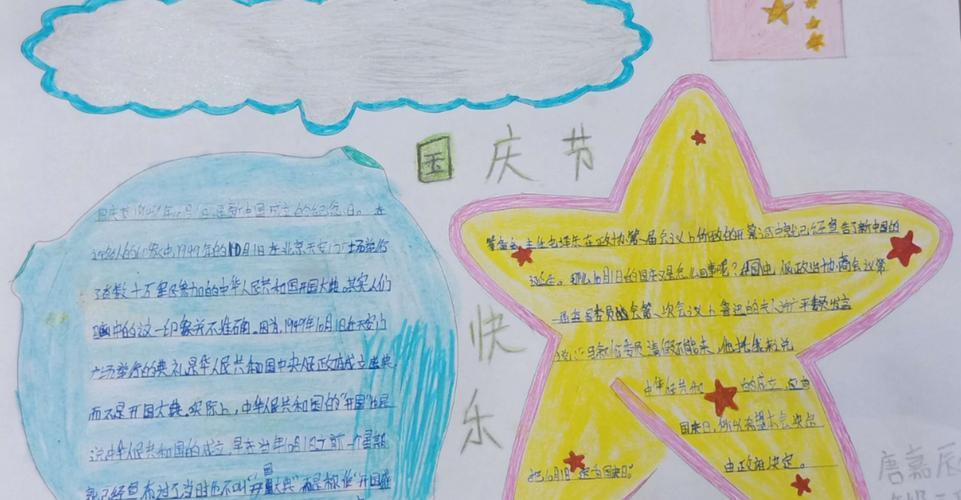 国庆节
快
乐
国庆节1949年10月1日是新中国成立的纪念日。在
许多人的印象中,1949年的10月1日在北京天安门广场举行
了有数十万军民参加的中华人民共和国开国大典。其实人们
脑中的这一印象并不准确。因为,1949年10月1日在天安门
广场举行的典礼是中华人民共和国中央人民政府成立盛典,
而不是开国大典。实际上,中华人民共和国的"开国"也是
说中华人民共和国的成立,早在当年10月1日之前一个星期
就已经宣布过了。当时也不叫"开国大典"而是称作"开国盛
主任也译东在政协第一届会议上所致的开幕词中就已经宣告了新中国的
诞生。那么10月1日的国庆又是怎么回事呢?在中国人民政治协商会议第
一届全国委员会第一次会议上鲁迅的夫人许广平委员发言
说:马叙伦委员请假不能来,他托我来说
中华人民共和国的成立,应有
国庆日,所以希望本会决定
把10月1日定为国庆日。
由政府决定。
唐嘉辰